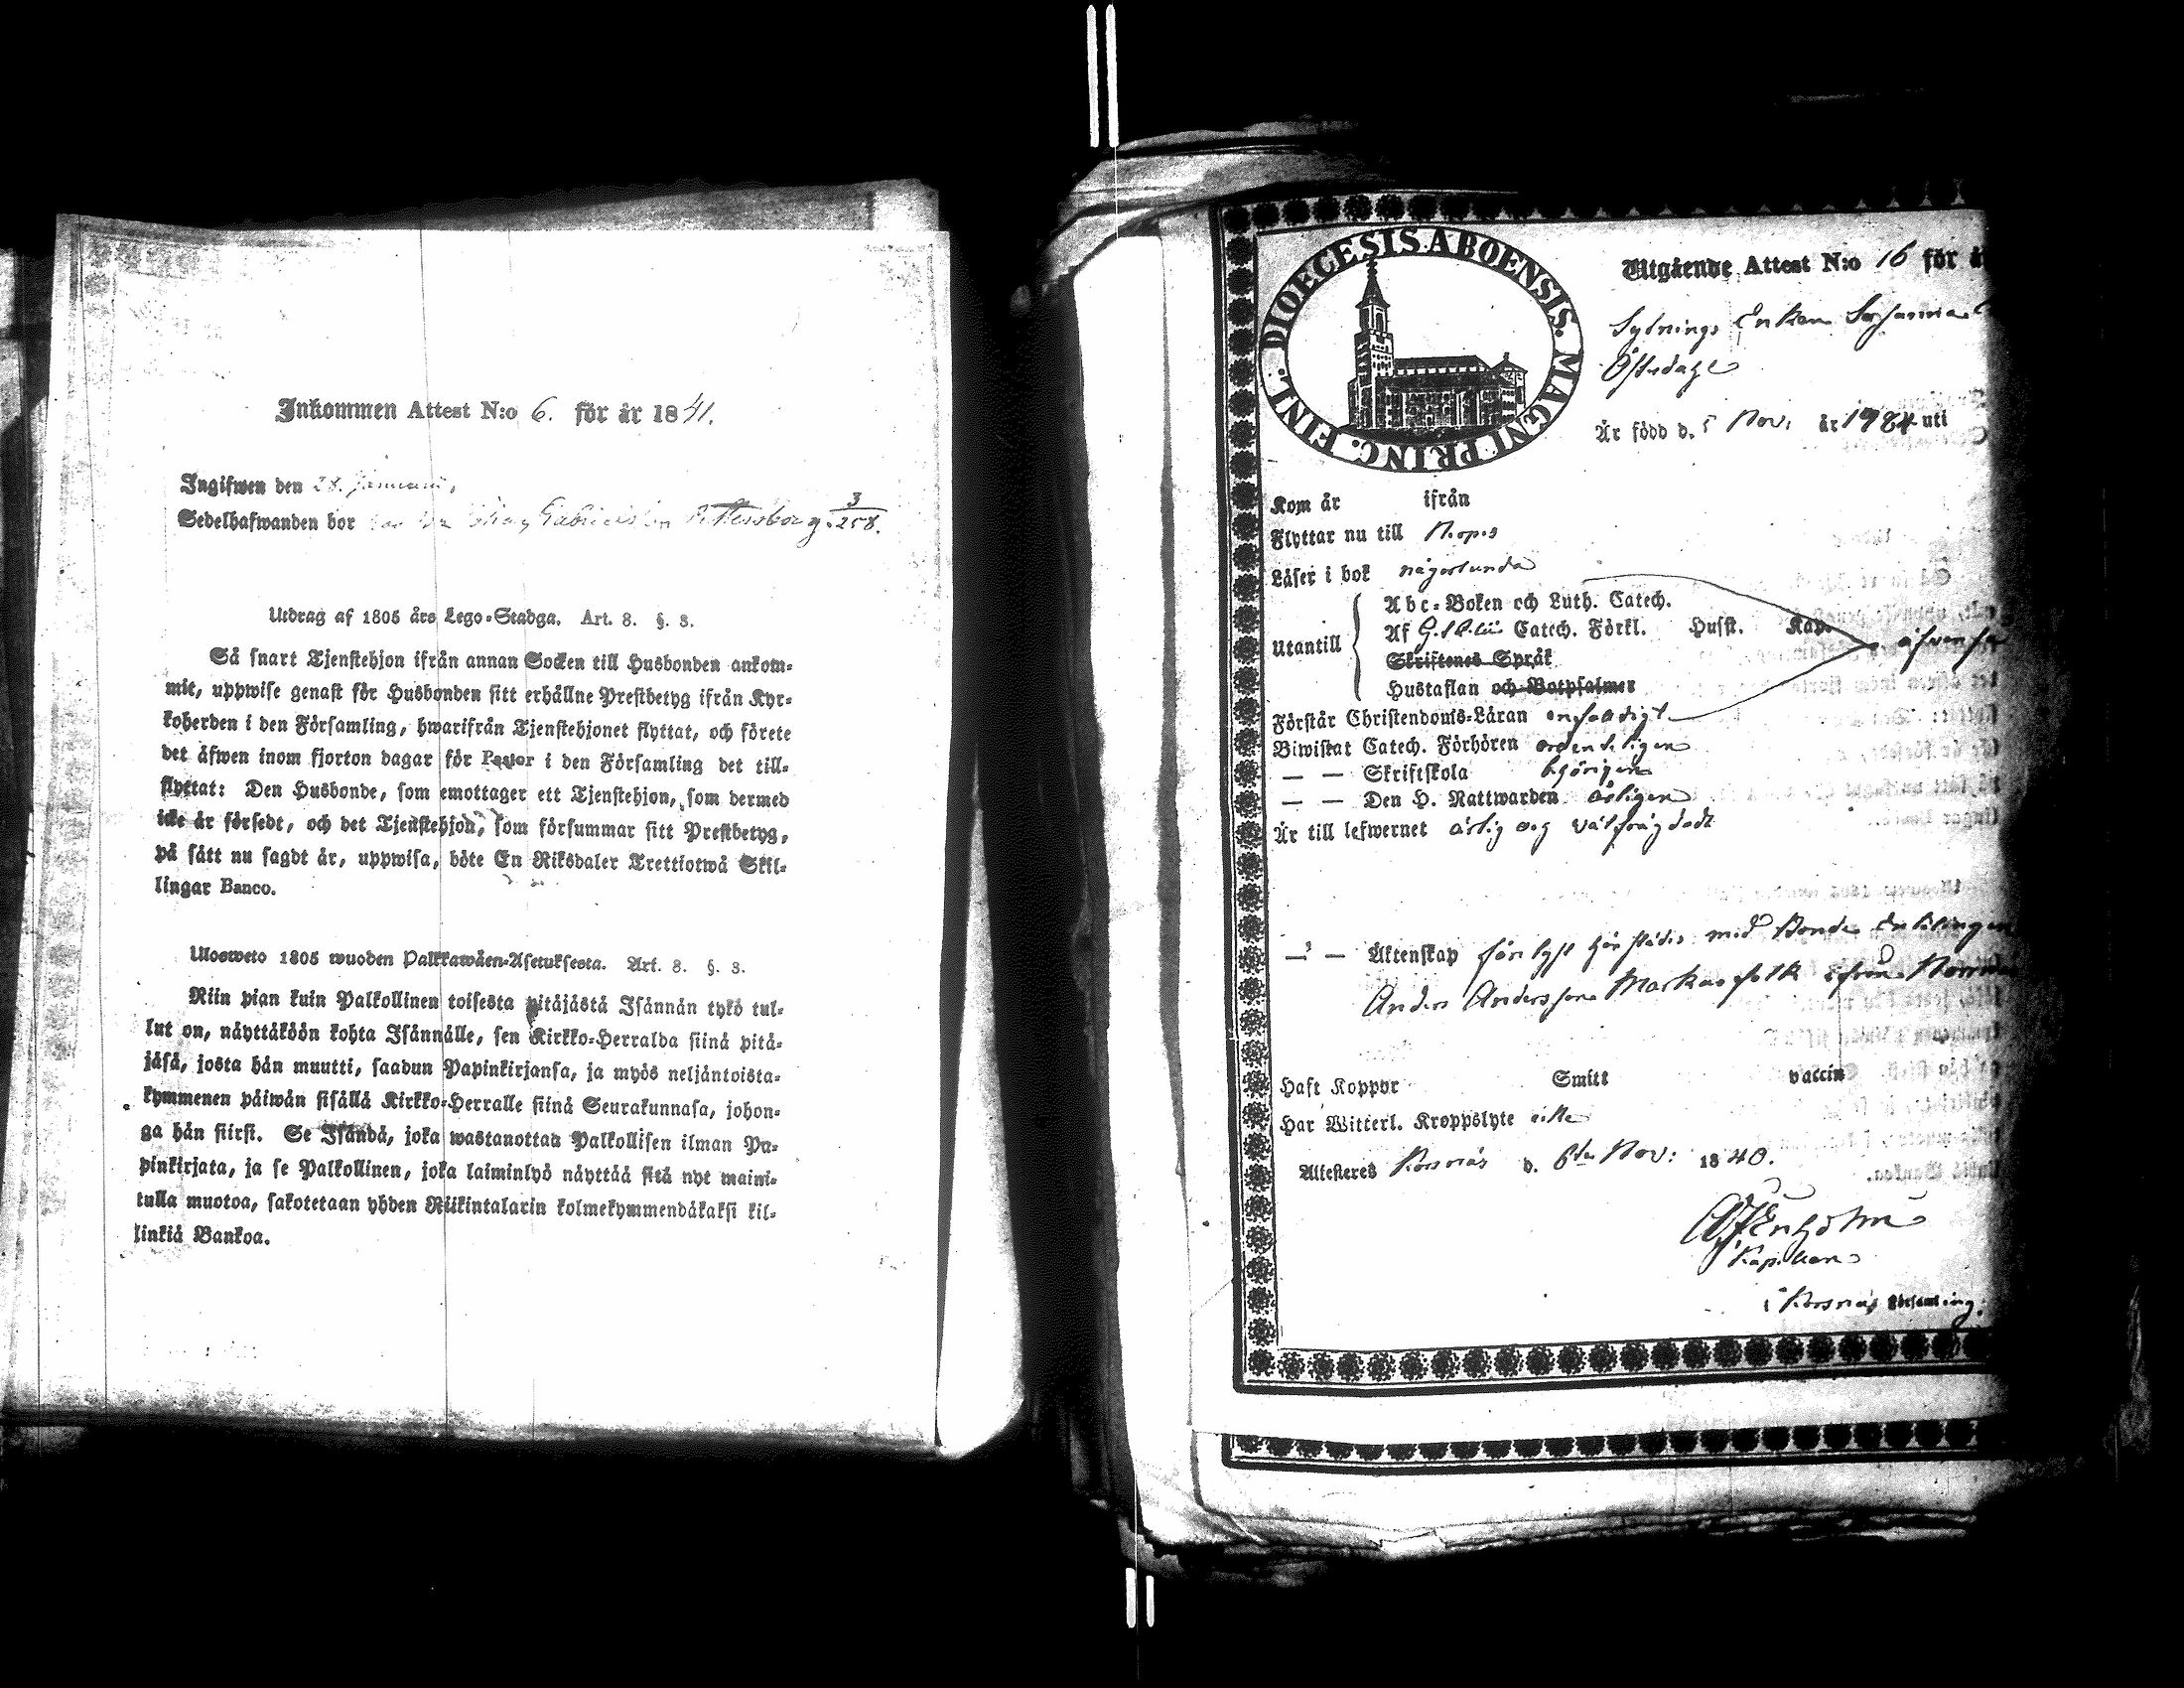 Inkommen Attest N:o 6. för år 1841.
Ingifwen den 28. Januarii,
Sedelhafwanden bor Gabrielsson 3/258.
Utdrag af 1805 års Lego-Stadga. Art. 8. §. 3.
Så snart Tjenstehjon ifrån annan Socken till Husbonden ankom-
mit, uppwise genast för Husbonden sitt erhållne Prestbetyg ifrån Kyr-
koherden i den Församling, hwarifrån Tjenstehjonet flyttat, och förete
det äfwen inom fjorton dagar för Pastor i den Församling det till-
flyttat: Den Husbonde, som emottager ett Tjenstehjon, som dermed
icke är försedt, och det Tjenstehjon, som försummar sitt Prestbetyg,
på sätt nu sagdt är, uppwisa, böte En Riksdaler Trettiotwå Skil-
lingar Banco.
Ulosweto 1805 wuoden Palkkawäen-Asetuksesta. Art. 8. §. 3.
Niin pian kuin Palkollinen toisesta pitäjästä Isännän tykö tul-
lut on, näyttäköön kohta Isännälle, sen Kirkko-Herralda siinä pitä-
jäsä, josta hän muutti, saadun Papinkirjansa, ja myös neljäntoista-
kymmenen päiwän sisällä Kirkko-Herralle siinä Seurakunnasa, johon-
ga hän siirsi. Se Isändä, joka wastanottaa Palkollisen ilman Pa-
pinkirjata, ja se Palkollinen, joka laiminlyö näyttää sitä nyt maini-
tulla muotoa, sakotetaan yhden Riikintalarin kolmekymmendäkaksi kil-
linkiä Bankoa.
DIOECESIS ABOENSIS. MAGNI PRINC. FINL.
Utgående Attest N:o 16 för å
Sytnings Enkan
Är född d. 5 Nov. år 1784 uti
Kom år ifrån
Flyttar nu till
Läser i bok någorlunda
Abc-Boken och Luth. Catech.
Utantill Af Catech. Förkl. Husst. Kap.
Skriftenes Språk
Hustaflan och Botpsalmer
Förstår Christendoms-Läran enfaldigt
Biwistat Catech. Förhören ordenteligen
— — Skriftskola behörigen
— — Den H. Nattwarden årligen
Är till lefwernet ärlig och välfrägdadt
— — Äktenskap härstädes med Bonde Enklingen
Anders Andersson ifrån
Haft Koppor Smitt vaccin
Har Witterl. Kroppslyte icke
Attesteres Korsnäs d. 6te Nov: 1840.
Kapellan
i Korsnäs Församling.